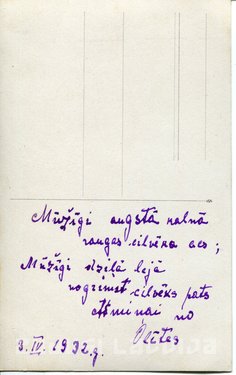 Mūžīgi augstā kalnā
raugas cilvēka acs;
Mūžīgi dziļā lejā
nogrimst cilvēks pats
Atmiņai no
3. IV. 1932.g.